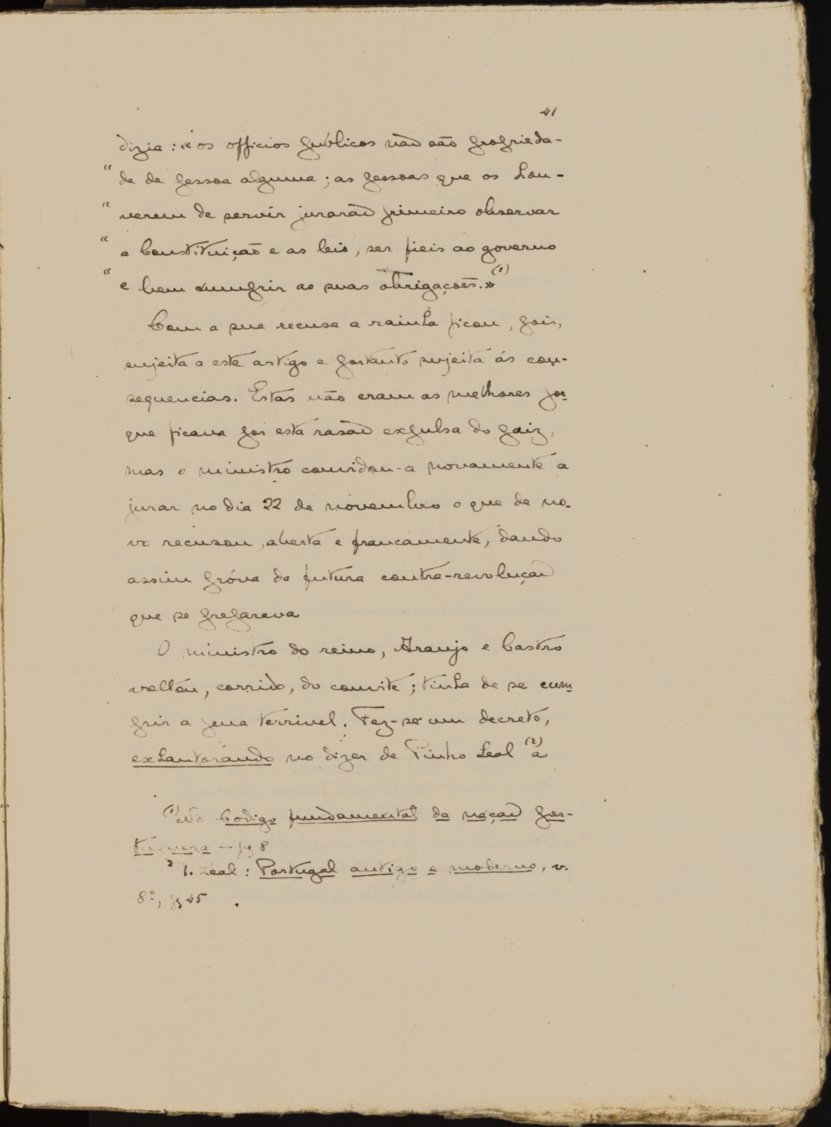 41
dizia: «os officios públicos não são proprieda-
"de de pessoa alguma; as pessoas que os hou-
"verem de servir jurarão primeiro observar
"a Constituição e as leis, ser fieis ao governo
"e bem cumprir as suas obrigações.»(1)
Com a sua recusa a rainha ficou, pois,
sujeita a este artigo e portanto sujeita ás con-
sequencias. Estas não eram as melhores por-
que ficava por esta rasão expulsa do paiz,
mas o ministro convidou-a novamente a
jurar no dia 22 de novembro o que de no-
vo recusou, aberta e francamente, dando
assim próva da futura contra-revolução
que se preparava
O ministro do reino, Araujo e Castro
voltou, corrido, do convite; tinha de se cum-
prir a pena terrivel. Fez-se um decreto,
exhautorando no dizer de Pinho Leal (2) a
(1) No Codigo fundamental da nação por-
tugueza - pg 8
2 P. Leal: Portugal antigo e moderno, v.
8º, pg 45